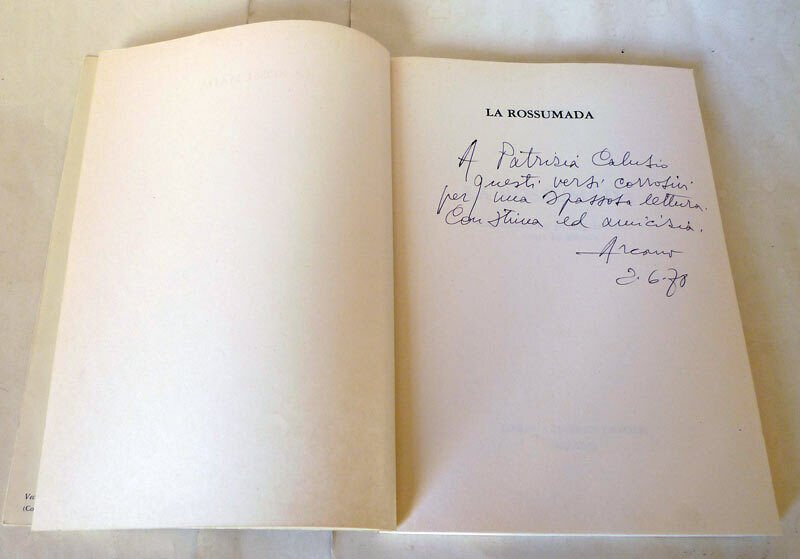 LA ROSSUMADA
A Patrizia Calusio
questi versi corrosivi
per una spassosa lettura.
Con stima ed amicizia.
Arcano
2.6.78
(Co